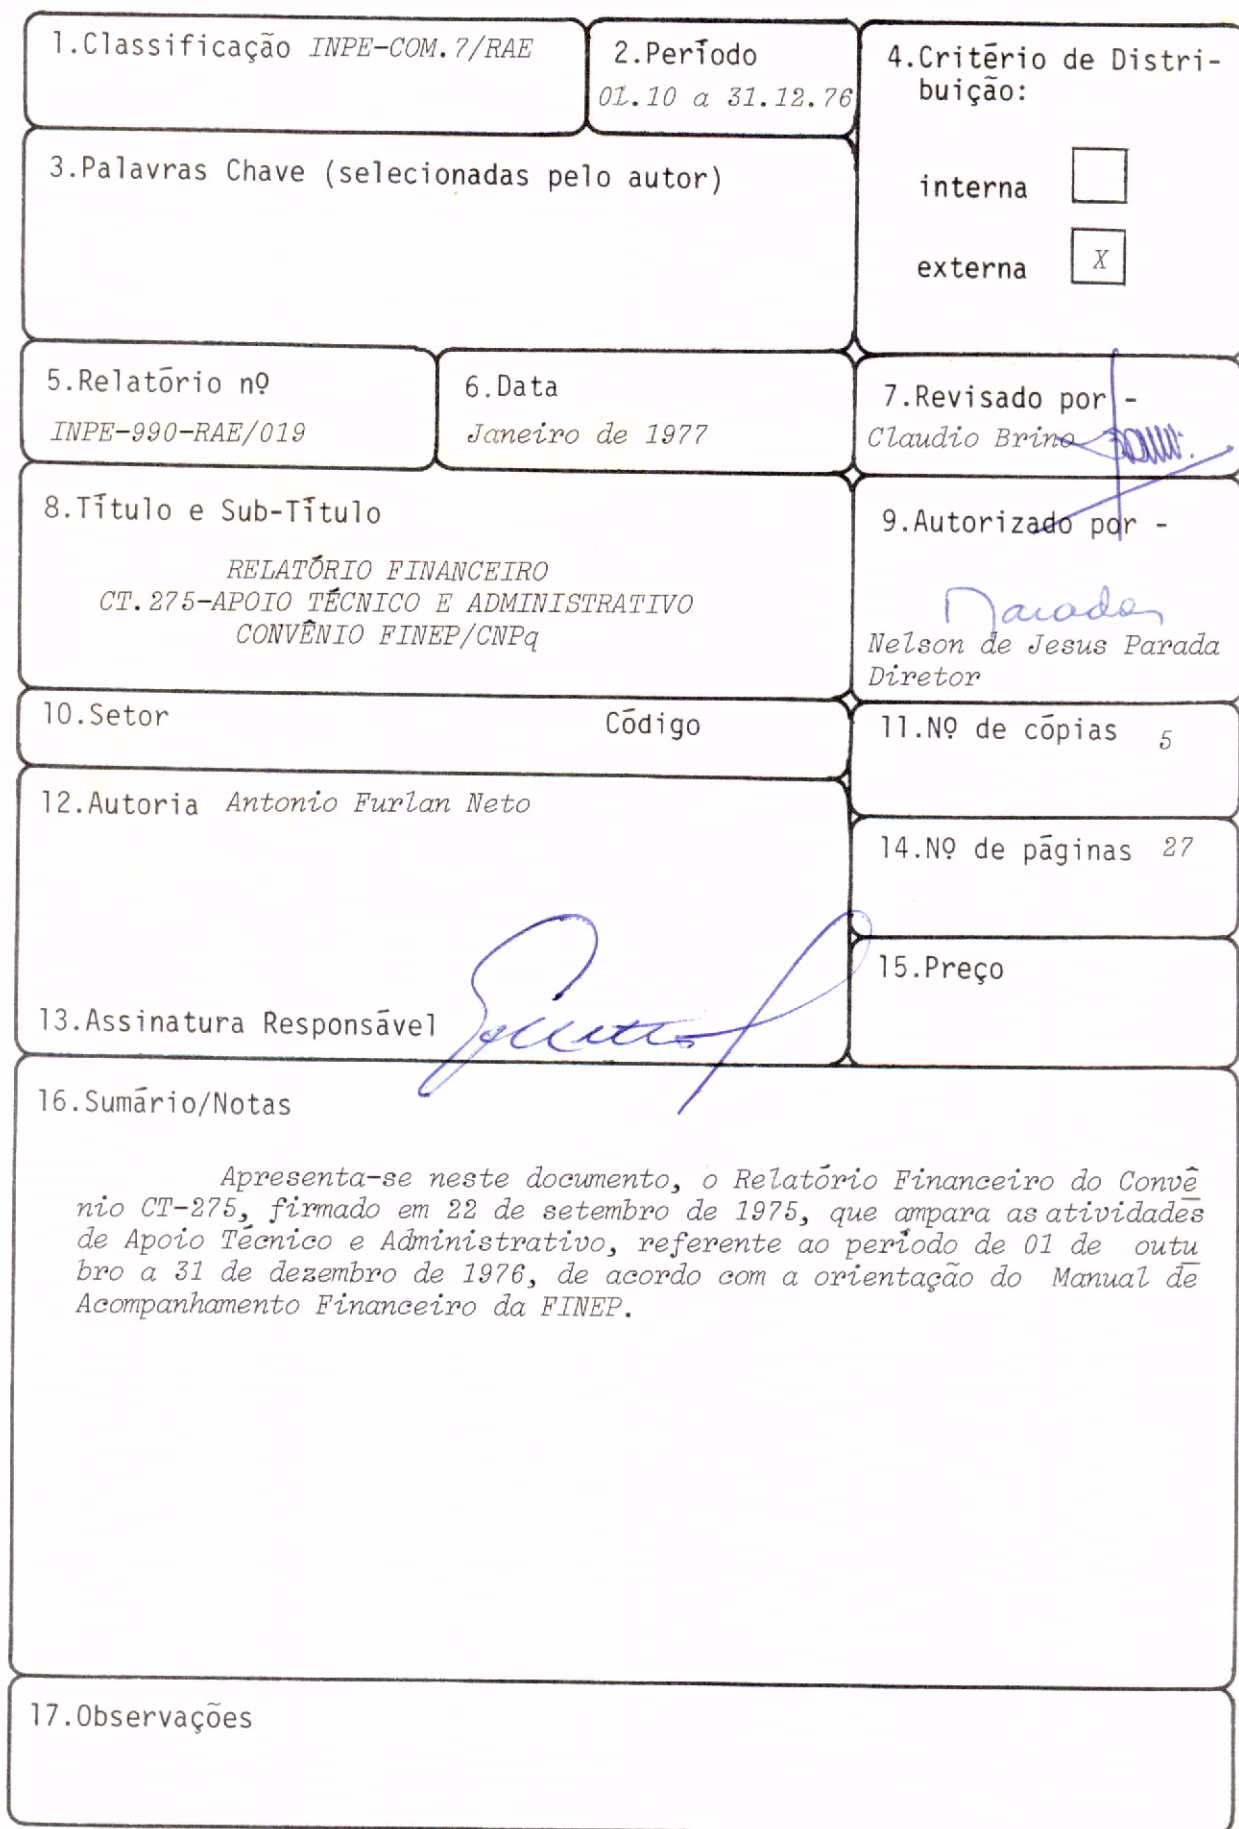 1.Classificação INPE-COM.7/RAE
2.Período
01.10 a 31.12.76
4.Critério de Distri-
buição:
interna
externa X
3.Palavras Chave (selecionadas pelo autor)
5.Relatório nº
INPE-990-RAE/019
6.Data
Janeiro de 1977
7.Revisado por -
Claudio Brino
8.Título e Sub-Título
RELATÓRIO FINANCEIRO
CT.275-APOIO TÉCNICO E ADMINISTRATIVO
CONVÊNIO FINEP/CNPq
9.Autorizado por -
Parada
Nelson de Jesus Parada
Diretor
10.Setor Código
11.Nº de cópias 5
12.Autoria Antonio Furlan Neto
14.Nº de páginas 27
13.Assinatura Responsável
15.Preço
16.Sumário/Notas
Apresenta-se neste documento, o Relatório Financeiro do Convê
nio CT-275, firmado em 22 de setembro de 1975, que ampara as atividades
de Apoio Técnico e Administrativo, referente ao período de 01 de outu
bro a 31 de dezembro de 1976, de acordo com a orientação do Manual de
Acompanhamento Financeiro da FINEP.
17.Observações